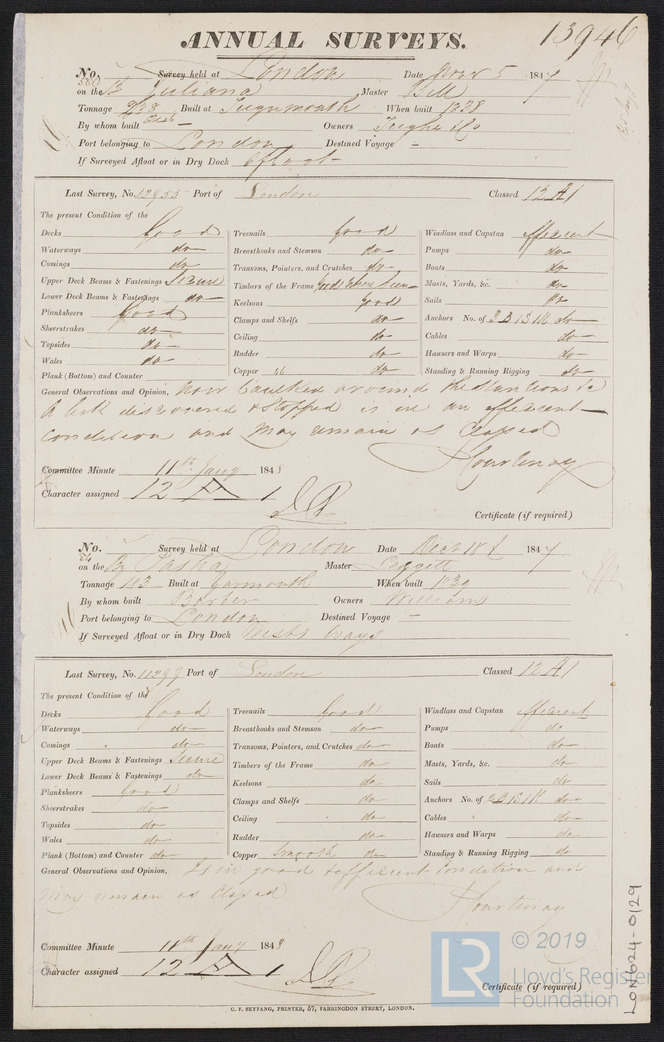 ANNUAL SURVEYS.
13946
No. 560 Survey held at London Date Novr 5 1847
on the Bk Juliana Master Bell
Tonnage Built at Teignmouth When built 1828
By whom built Owners Tighe & Co
Port belonging to London Destined Voyage -
If Surveyed Afloat or in Dry Dock Afloat
Last Survey, No. 12855 Port of London Classed 12 A1
The present Condition of the
Decks Good
Waterways do
Comings do
Upper Deck Beams & Fastenings Secure
Lower Deck Beams & Fastenings do
Planksheers Good
Sheerstrakes do
Topsides do
Wales do
Plank (Bottom) and Counter
Treenails Good
Breasthooks and Stemson do
Transoms, Pointers, and Crutches do
Timbers of the Frame Good where seen
Keelsons Good
Clamps and Shelfs do
Ceiling do
Rudder do
Copper 46 do
Windlass and Capstan Efficient
Pumps do
Boats do
Masts, Yards, &c. do
Sails do
Anchors No. of 3B 1S 1K do
Cables do
Hawsers and Warps do
Standing & Running Rigging do
General Observations and Opinion, Now Caulked around
A leak discovered & stopped is in an efficient
condition and may remain as Classed
J Courtenay
Committee Minute 11th Jany 1848
Character assigned 12 A 1
Certificate (if required)
No. 54 Survey held at London Date Decr 18 1847
on the Bg Pasha Master Leggett
Tonnage 193 Built at Yarmouth When built 1839
By whom built Barber Owners Williams
Port belonging to London Destined Voyage -
If Surveyed Afloat or in Dry Dock Ways
Last Survey, No. 11299 Port of London Classed 12 A1
The present Condition of the
Decks Good
Waterways do
Comings do
Upper Deck Beams & Fastenings Secure
Lower Deck Beams & Fastenings do
Planksheers Good
Sheerstrakes do
Topsides do
Wales do
Plank (Bottom) and Counter do
Treenails Good
Breasthooks and Stemson do
Transoms, Pointers, and Crutches do
Timbers of the Frame do
Keelsons do
Clamps and Shelfs do
Ceiling do
Rudder do
Copper Smooth do
Windlass and Capstan Efficient
Pumps do
Boats do
Masts, Yards, &c. do
Sails do
Anchors No. of 2B 1S 1K do
Cables do
Hawsers and Warps do
Standing & Running Rigging do
General Observations and Opinion, Is in good & efficient condition and
may remain as Classed
J Courtenay
Committee Minute 11th Jany 1848
Character assigned 12 A 1
Certificate (if required)
C. F. SEYFANG, PRINTER, 57, FARRINGDON STREET, LONDON.
LON624-0129
LR © 2019
Lloyd's Register
Foundation